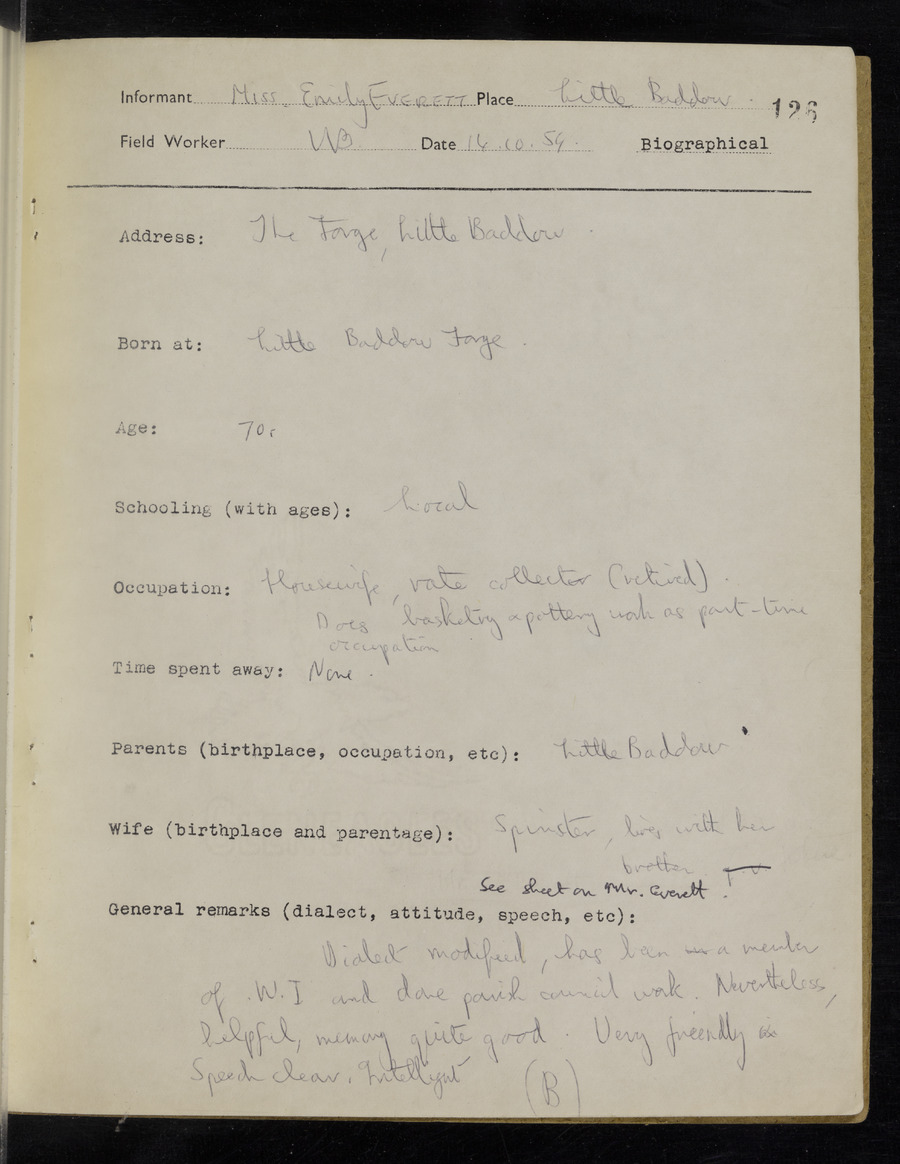 Informant Miss. Emily EVERETT Place Little Baddow.
126
Field Worker Date 14.10.59. Biographical
Address: The Forge, Little Baddow.
Born at: Little Baddow Forge.
Age: 70.
Schooling (with ages): Local
Occupation: Housewife, rate collector (retired).
Does basketry & pottery work as part-time
occupation
Time spent away: None.
Parents (birthplace, occupation, etc): Little Baddow
Wife (birthplace and parentage): Spinster, lives with her
brother
See sheet on Mr. Everett.
General remarks (dialect, attitude, speech, etc):
Dialect modified, has been a member
of W.I and done parish council work. Nevertheless,
helpful, memory quite good. Very friendly
Speech clear. Intelligent (B)